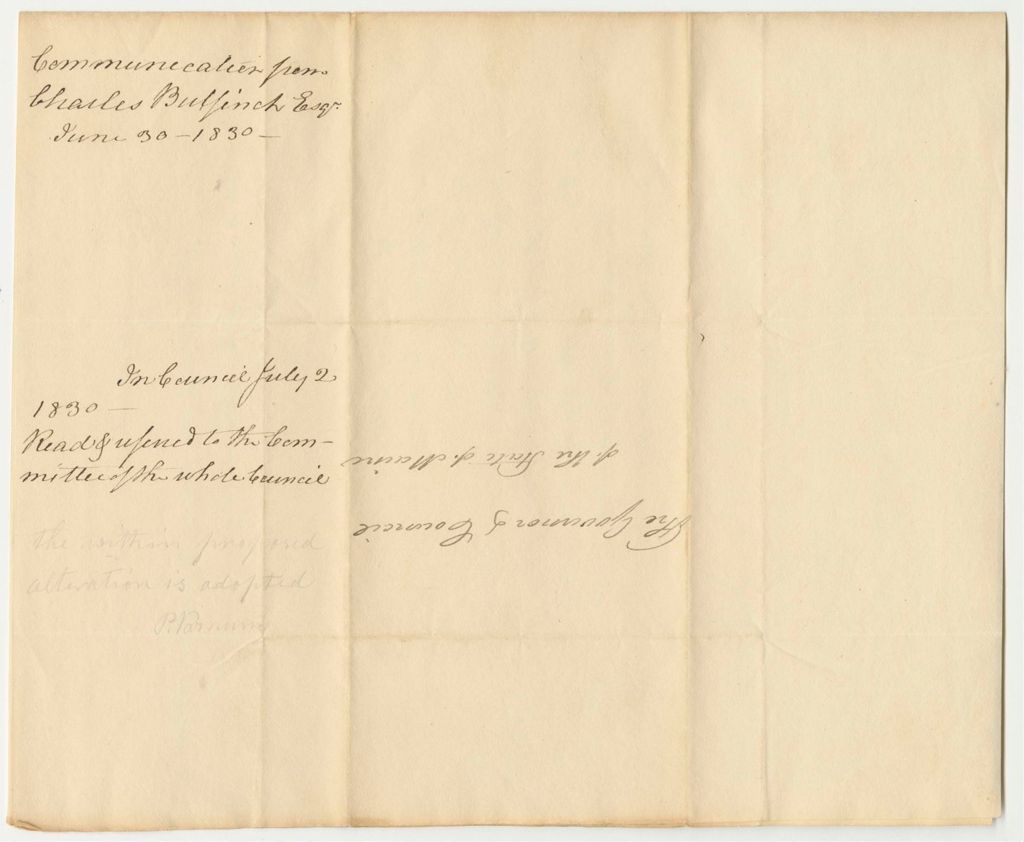 Communication from
Charles Bulfinch Esqr.
June 30 - 1830 -
In Council July 2
1830 -
Read & referred to the Com-
mittee of the whole Council
the within proposed
alteration is adopted
The Governor & Council
of the State of Maine